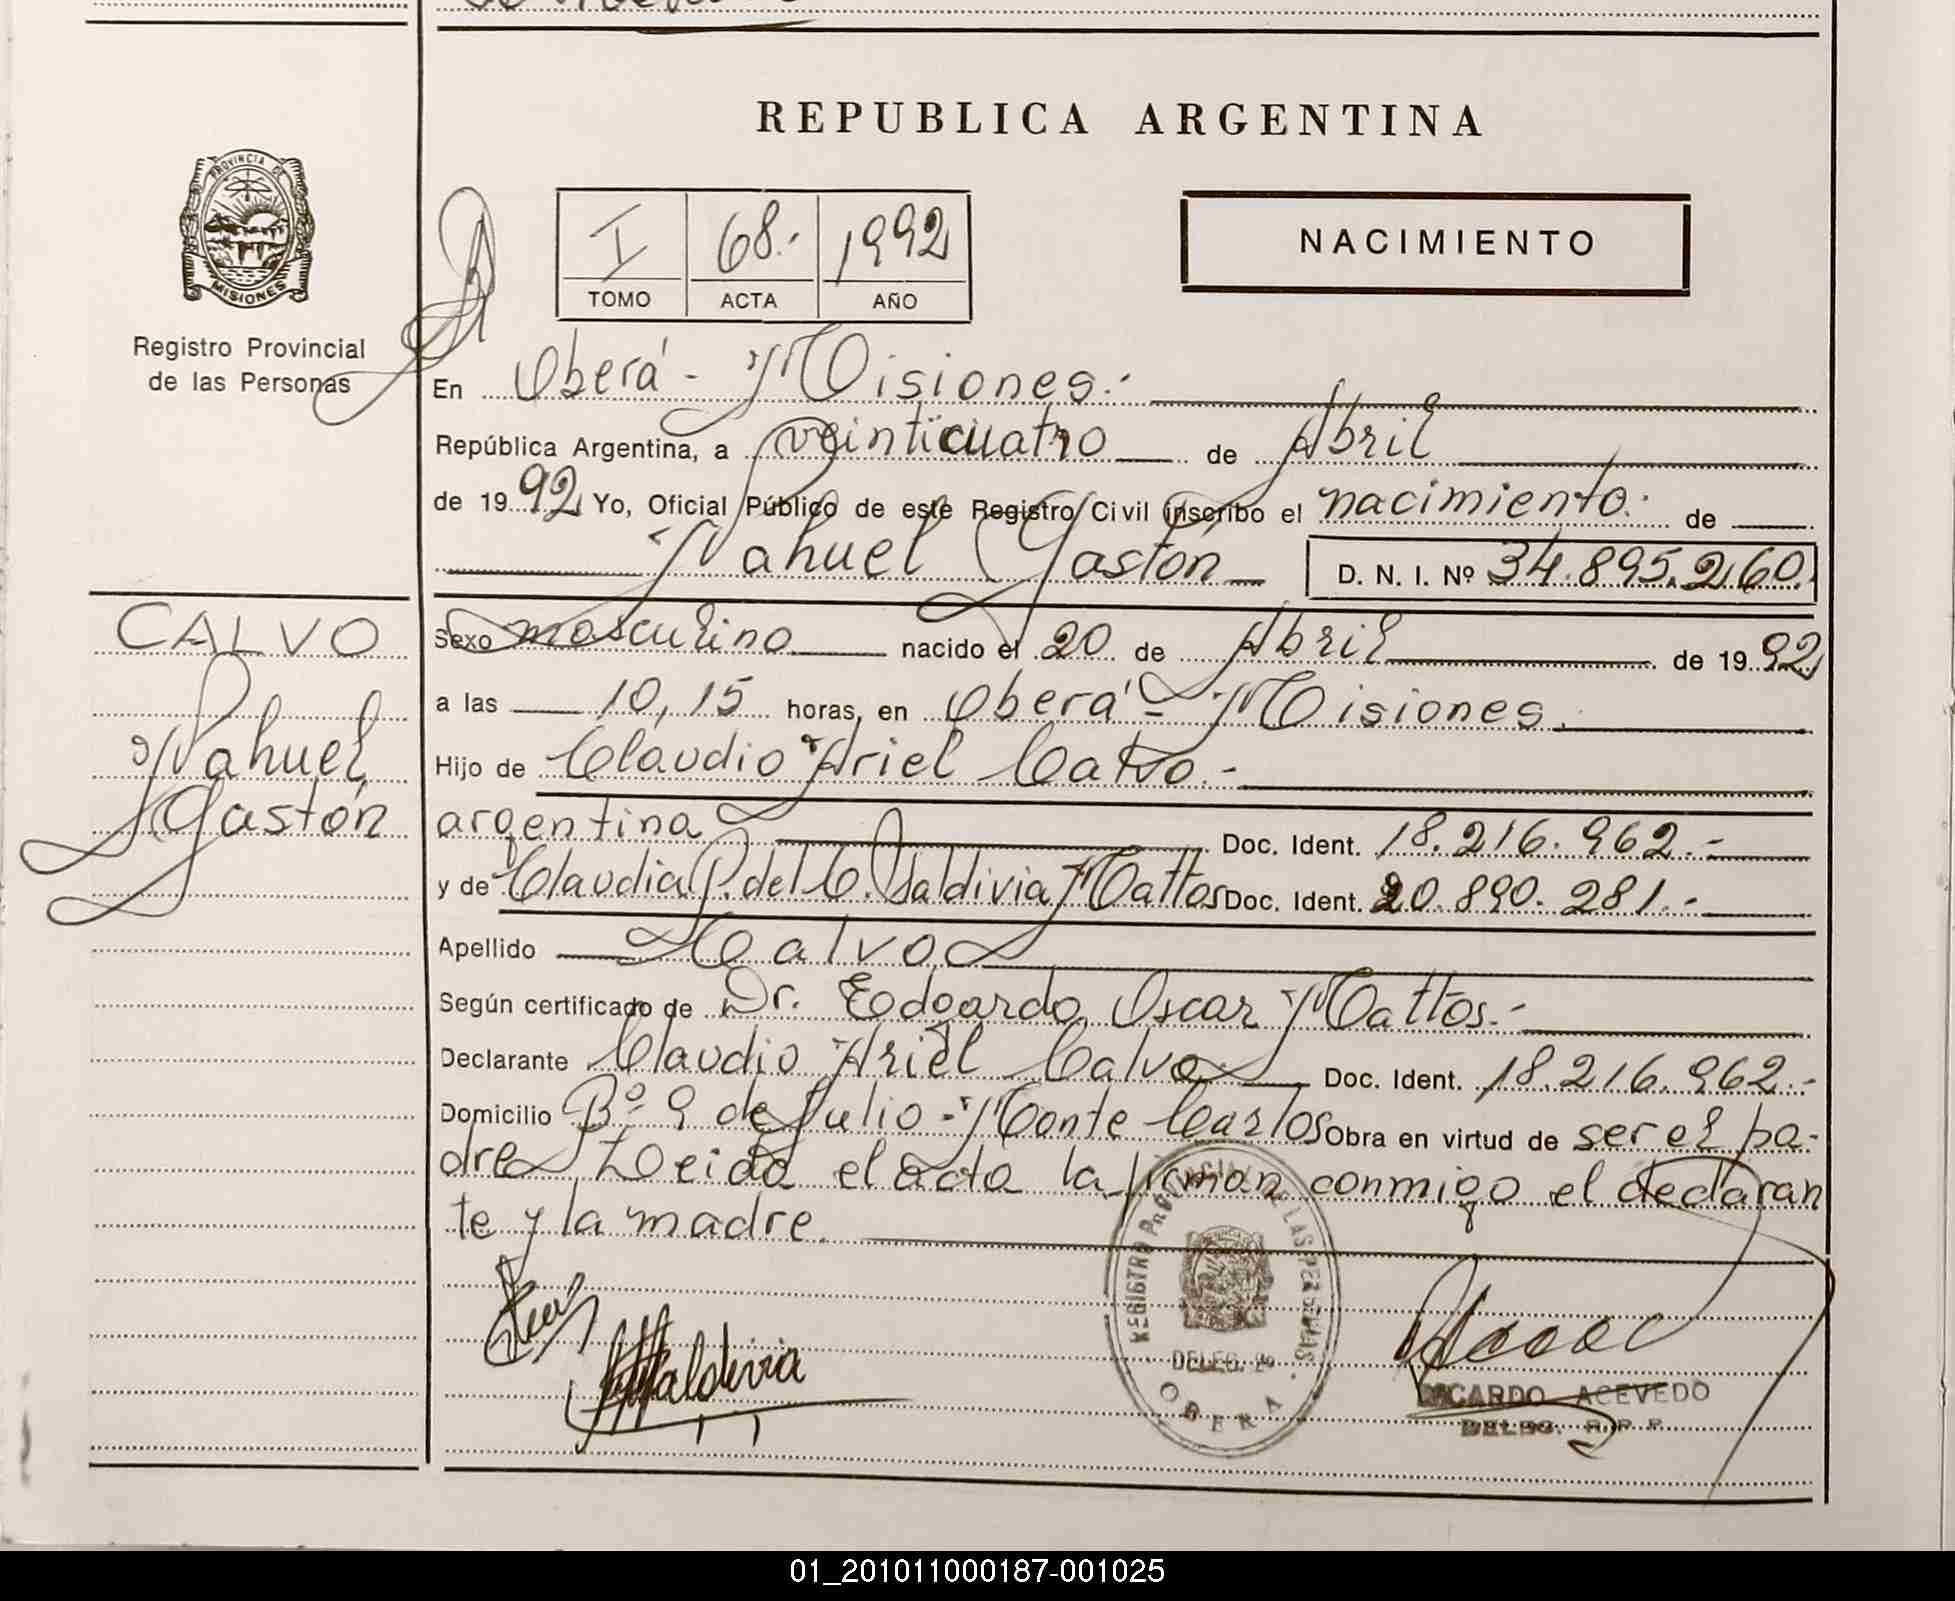 REPUBLICA ARGENTINA
PROVINCIA DE
MISIONES
Registro Provincial
de las Personas
I 68.- 1992
TOMO ACTA AÑO
NACIMIENTO
En Oberá - Misiones.-
República Argentina, a veinticuatro de Abril
de 1992 Yo, Oficial Público de este Registro Civil inscribo el nacimiento. de
Nahuel Gastón D. N. I. Nº 34.895.260.
CALVO
Nahuel
Gastón
Sexo masculino nacido el 20 de Abril de 1992
a las 10,15 horas, en Oberá - Misiones.
Hijo de Claudio Ariel Calvo.-
argentina Doc. Ident. 18.216.962.-
y de Claudia P. del C. Saldivia Mattos Doc. Ident. 20.890.281.-
Apellido Calvo
Según certificado de Dr. Edgardo Oscar Mattos.-
Declarante Claudio Ariel Calvo Doc. Ident. 18.216.962.-
Domicilio Bº 9 de Julio - Monte Carlos Obra en virtud de ser el pa-
dre Leida el acta la firman conmigo el declaran
te y la madre.
REGISTRO PROVINCIAL DE LAS PERSONAS
DELEG. 2º
OBERA
Saldivia
RICARDO ACEVEDO
DELEG. R.P.P.
01_201011000187-001025